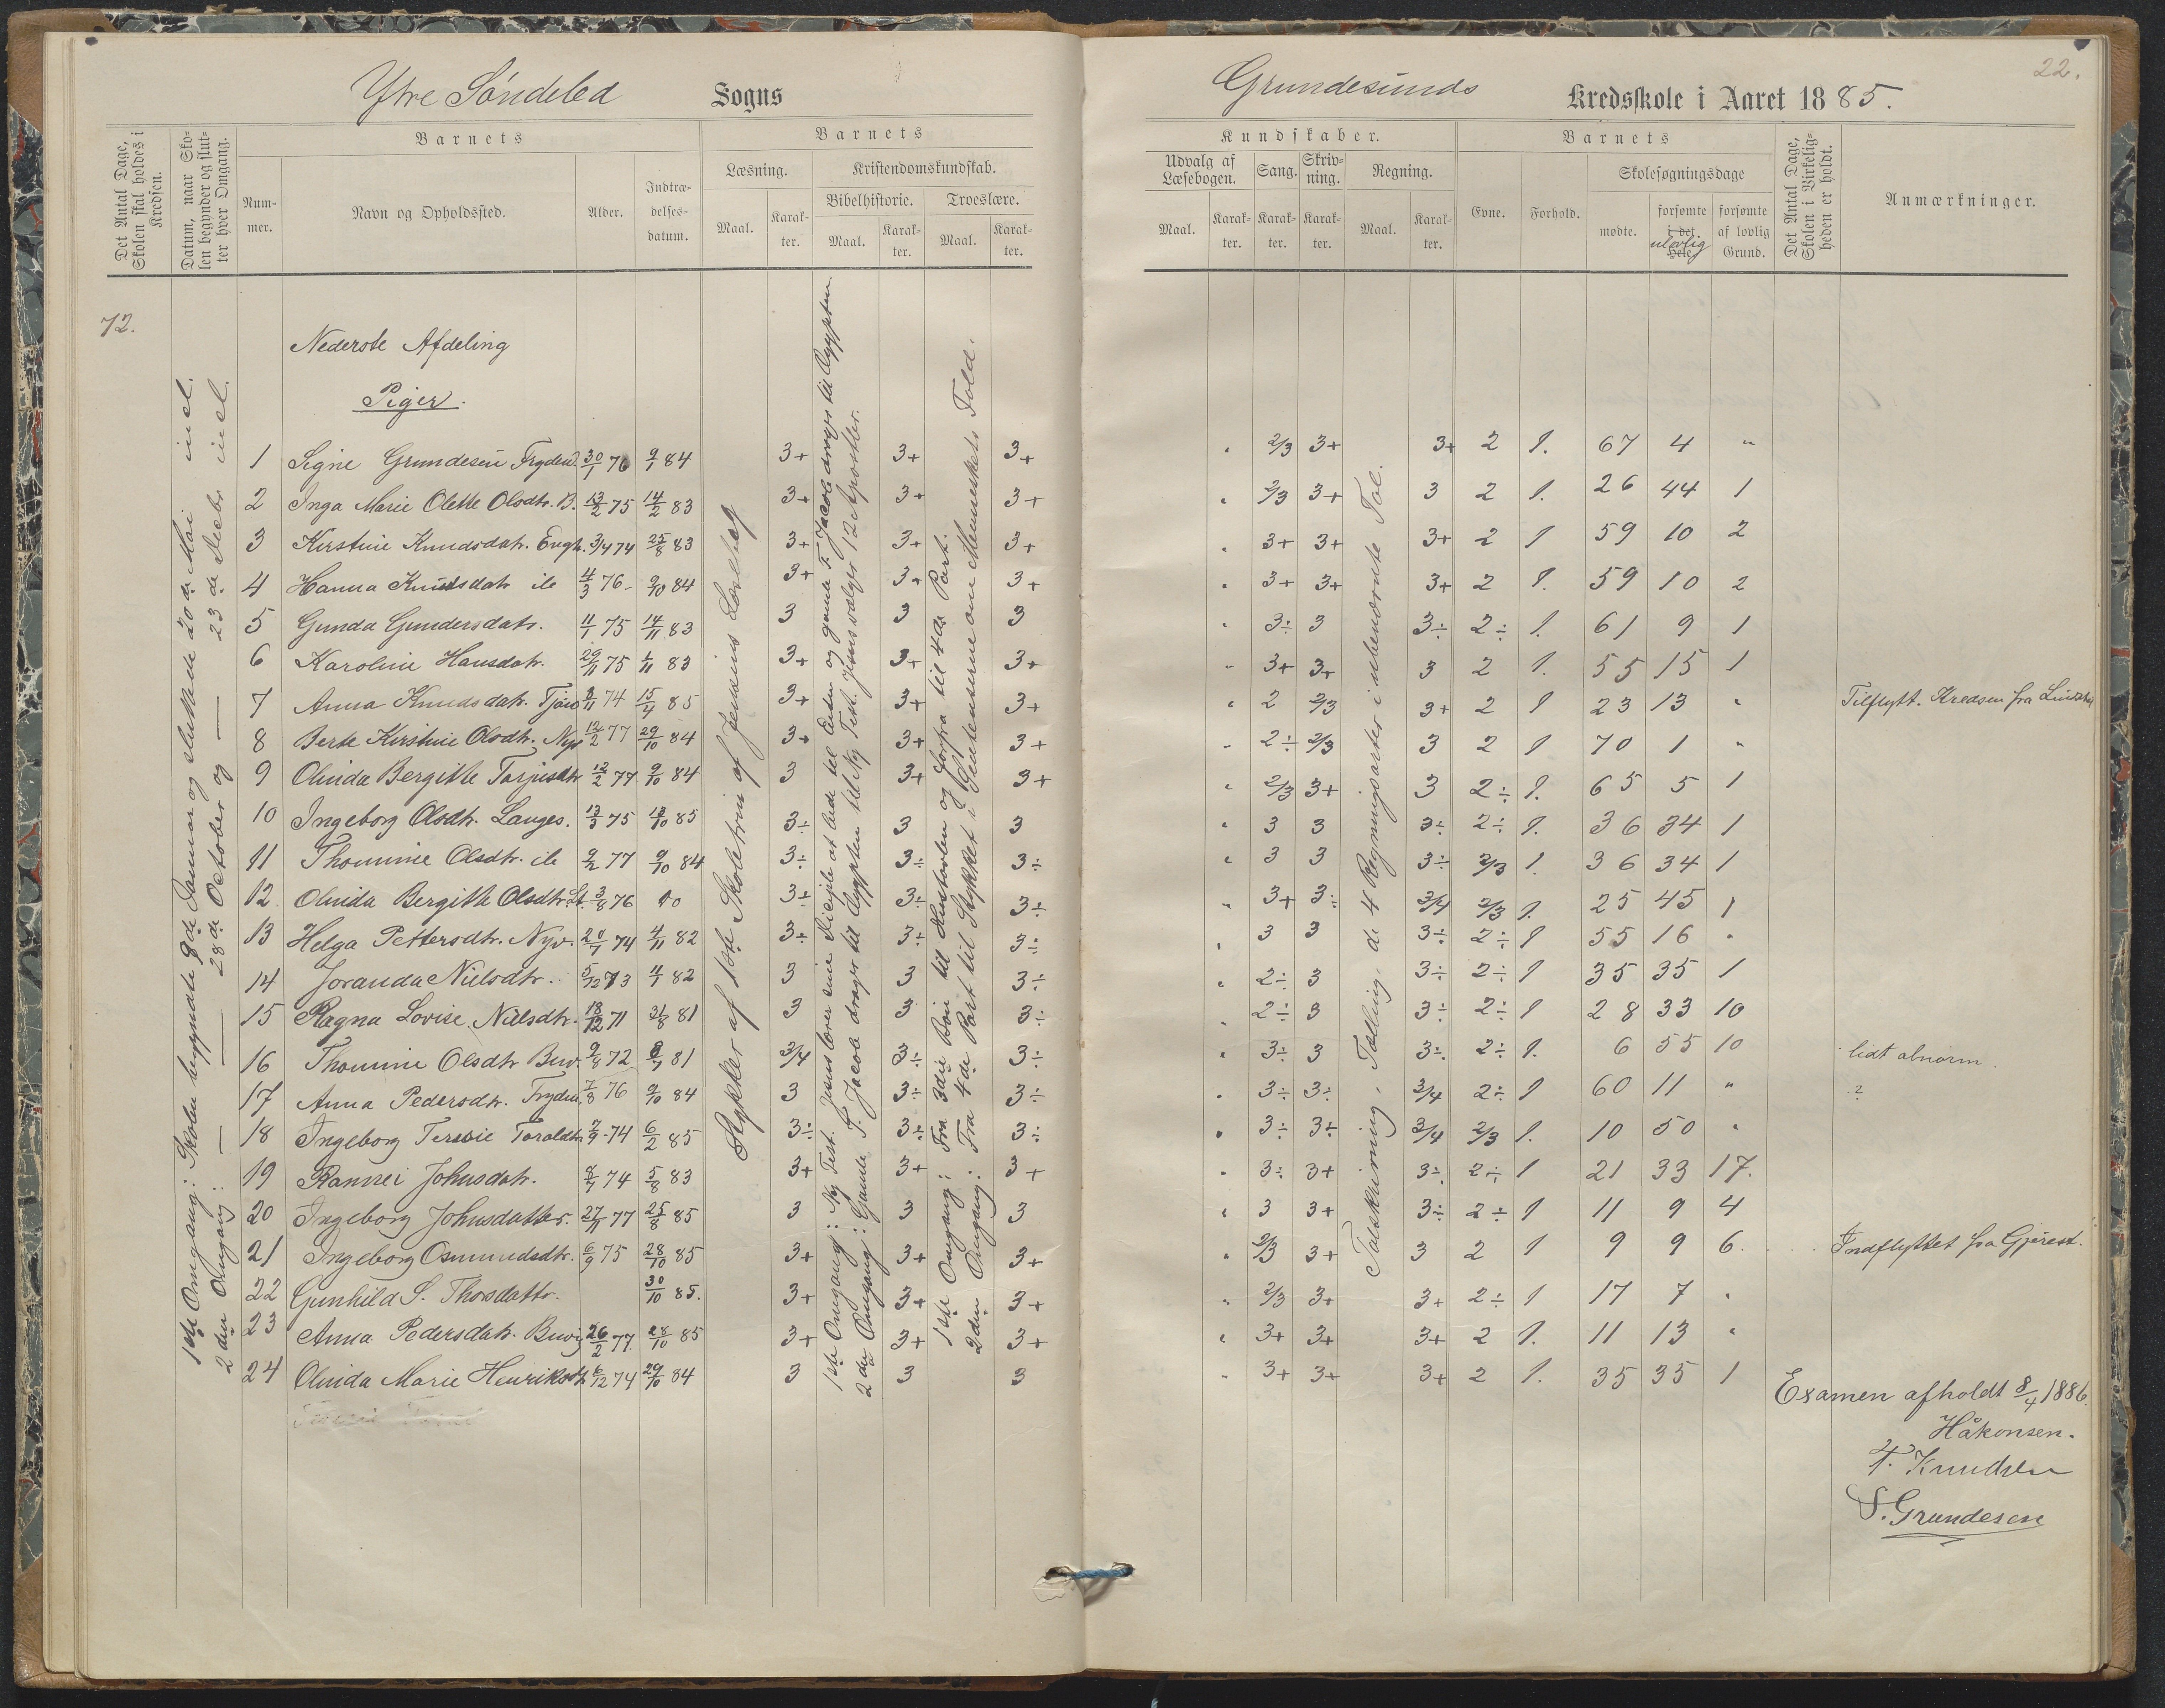 22.
Ytre Søndeled Sogns
Grundesunds Kredsskole i Aaret 1885.
Det Antal Dage, Skolen skal holdes i Kredsen.
Datum, naar Skolen begynder og slutter hver Omgang.
Barnets
Nummer.
Navn og Opholdssted.
Alder.
Indtrædelsesdatum.
Barnets
Læsning.
Kristendomskundskab.
Bibelhistorie.
Troeslære.
Maal.
Karakter.
Maal.
Karakter.
Maal.
Karakter.
Kundskaber.
Udvalg af Læsebogen.
Sang.
Skrivning.
Regning.
Maal.
Karakter.
Karakter.
Karakter.
Maal.
Karakter.
Barnets
Evne.
Forhold.
Skolesøgningsdage
mødte.
forsømte i det hele ulovlig
forsømte af lovlig Grund.
Det Antal Dage, Skolen i Virkeligheden er holdt.
Anmærkninger.
72.
Nederste Afdeling
Piger.
1ste Omgang: Skolen begyndte 9de Januar og sluttede 20de Mai incl.
2den Omgang: — — 28de October og — 23de Decebr incl.
Stykker af 1ste Skoletrin af Jensens Læsebog
1ste Omgang: Ny Test. Jesus lærer sine Disciple at bede til Enden og gamle T. Jacob drager til Ægypten
2den Omgang: Gamle T. Jacob drager til Ægypten til Ny Test. Jesus vælger 12 Apostler.
1ste Omgang: Fra 3die Bøn til Hustavlen og forfra til 4de Part.
2den Omgang: Fra 4de Part til Stykket i Sentenserne om Menneskets Fald.
Talskrivning, Tælling, de 4 Regningsarter i ubenævnte Tal.
1 Signe Grundesen Frydend. 30/1 76 9/1 84 3+ 3+ 3+ " 2/3 3+ 3+ 2 1. 67 4 "
2 Inga Marie Olette Olsdtr. B. 13/2 75 14/2 83 3+ 3+ 3+ " 2/3 3+ 3 2 1. 26 44 1
3 Kirstine Knudsdatr. Engh. 3/4 74 25/8 83 3+ 3+ 3+ " 3+ 3+ 3+ 2 1 59 10 2
4 Hanna Knudsdatr ib 4/3 76 9/10 84 3+ 3+ 3+ " 3+ 3+ 3+ 2 1. 59 10 2
5 Gunda Gundersdatr. 11/1 75 14/11 83 3 3 3 " 3÷ 3 3÷ 2÷ 1. 61 9 1
6 Karoline Hansdatr. 29/11 75 1/11 83 3+ 3+ 3+ " 3+ 3+ 3 2 1. 55 15 1
7 Anna Knudsdatr. 74 15/4 85 3+ 3+ 3+ " 2 2/3 3+ 2 1 23 13 " Tilflytt. Kredsen fra
8 Berte Kirstine Olsdtr. 12/2 77 29/10 84 3+ 3+ 3+ " 2÷ 2/3 3 2 1 70 1 "
9 Olinda Bergitte Tarjusdtr 12/2 77 9/10 84 3 3+ 3+ " 2/3 3+ 3 2÷ 1. 65 5 1
10 Ingeborg Olsdtr. Langes. 13/3 75 85 3÷ 3 3 " 3 3 3÷ 2÷ 1. 36 34 1
11 Thomine Olsdtr. ib 9/2 77 9/10 84 3÷ 3÷ 3÷ " 3 3 3÷ 2/3 1. 36 34 1
12. Olinda Bergitte Olsdtr. 3/8 76 3÷ 3÷ 3÷ " 3+ 3÷ 3/4 2/3 1. 25 45 1
13 Helga Pettersdtr. Nyv. 74 4/11 82 3÷ 3÷ 3÷ " 3 3 3÷ 2÷ 1 55 16 "
14 Joranda Nielsdtr. 5/12 73 82 3 3 3÷ " 2÷ 3 3÷ 2÷ 1 35 35 1
15 Ragna Lovise Nielsdtr. 18/12 71 81 3 3 3÷ " 2÷ 3 3÷ 2÷ 1 28 33 10
16 Thomine Olsdtr 9/8 72 81 3/4 3÷ 3÷ " 3÷ 3 3÷ 2÷ 1. 6 55 10 lidt abnorm.
17 Anna Pedersdtr. 7/8 76 9/10 84 3 3÷ 3÷ " 3÷ 3÷ 3/4 2÷ 1 60 11 " ?
18 Ingeborg Teresie Taraldtr 7/9 74 6/2 85 3÷ 3÷ 3÷ " 3÷ 3÷ 3/4 2/3 1. 10 50 "
19 Rannei Johnsdatr. 74 5/8 83 3+ 3+ 3+ " 3÷ 3+ 3÷ 2÷ 1 21 33 17.
20 Ingeborg Johnsdatter. 27/11 77 25/8 85 3 3 3 " 3 3+ 3÷ 2÷ 1 11 9 4
21 Ingeborg Osmundsdtr. 6/9 75 28/10 85 3+ 3+ 3+ " 2/3 3+ 3 2 1 9 9 6. Indflyttet fra Gjerest.
22 Gunhild S. Thorsdattr. 30/10 85. 3+ 3+ 3+ " 2/3 3+ 3+ 2÷ 1 17 7 "
23 Anna Pedersdatr. 26/2 77. 28/10 85 3+ 3+ 3+ " 3+ 3+ 3+ 2 1. 11 13 "
24 Olinda Marie Henriksdtr 6/12 74 29/10 84 3 3 3 " 3+ 3+ 3+ 2 1. 35 35 1
Examen afholdt 8/4 1886.
Håkonsen.
T. Knudsen
S. Grundesen